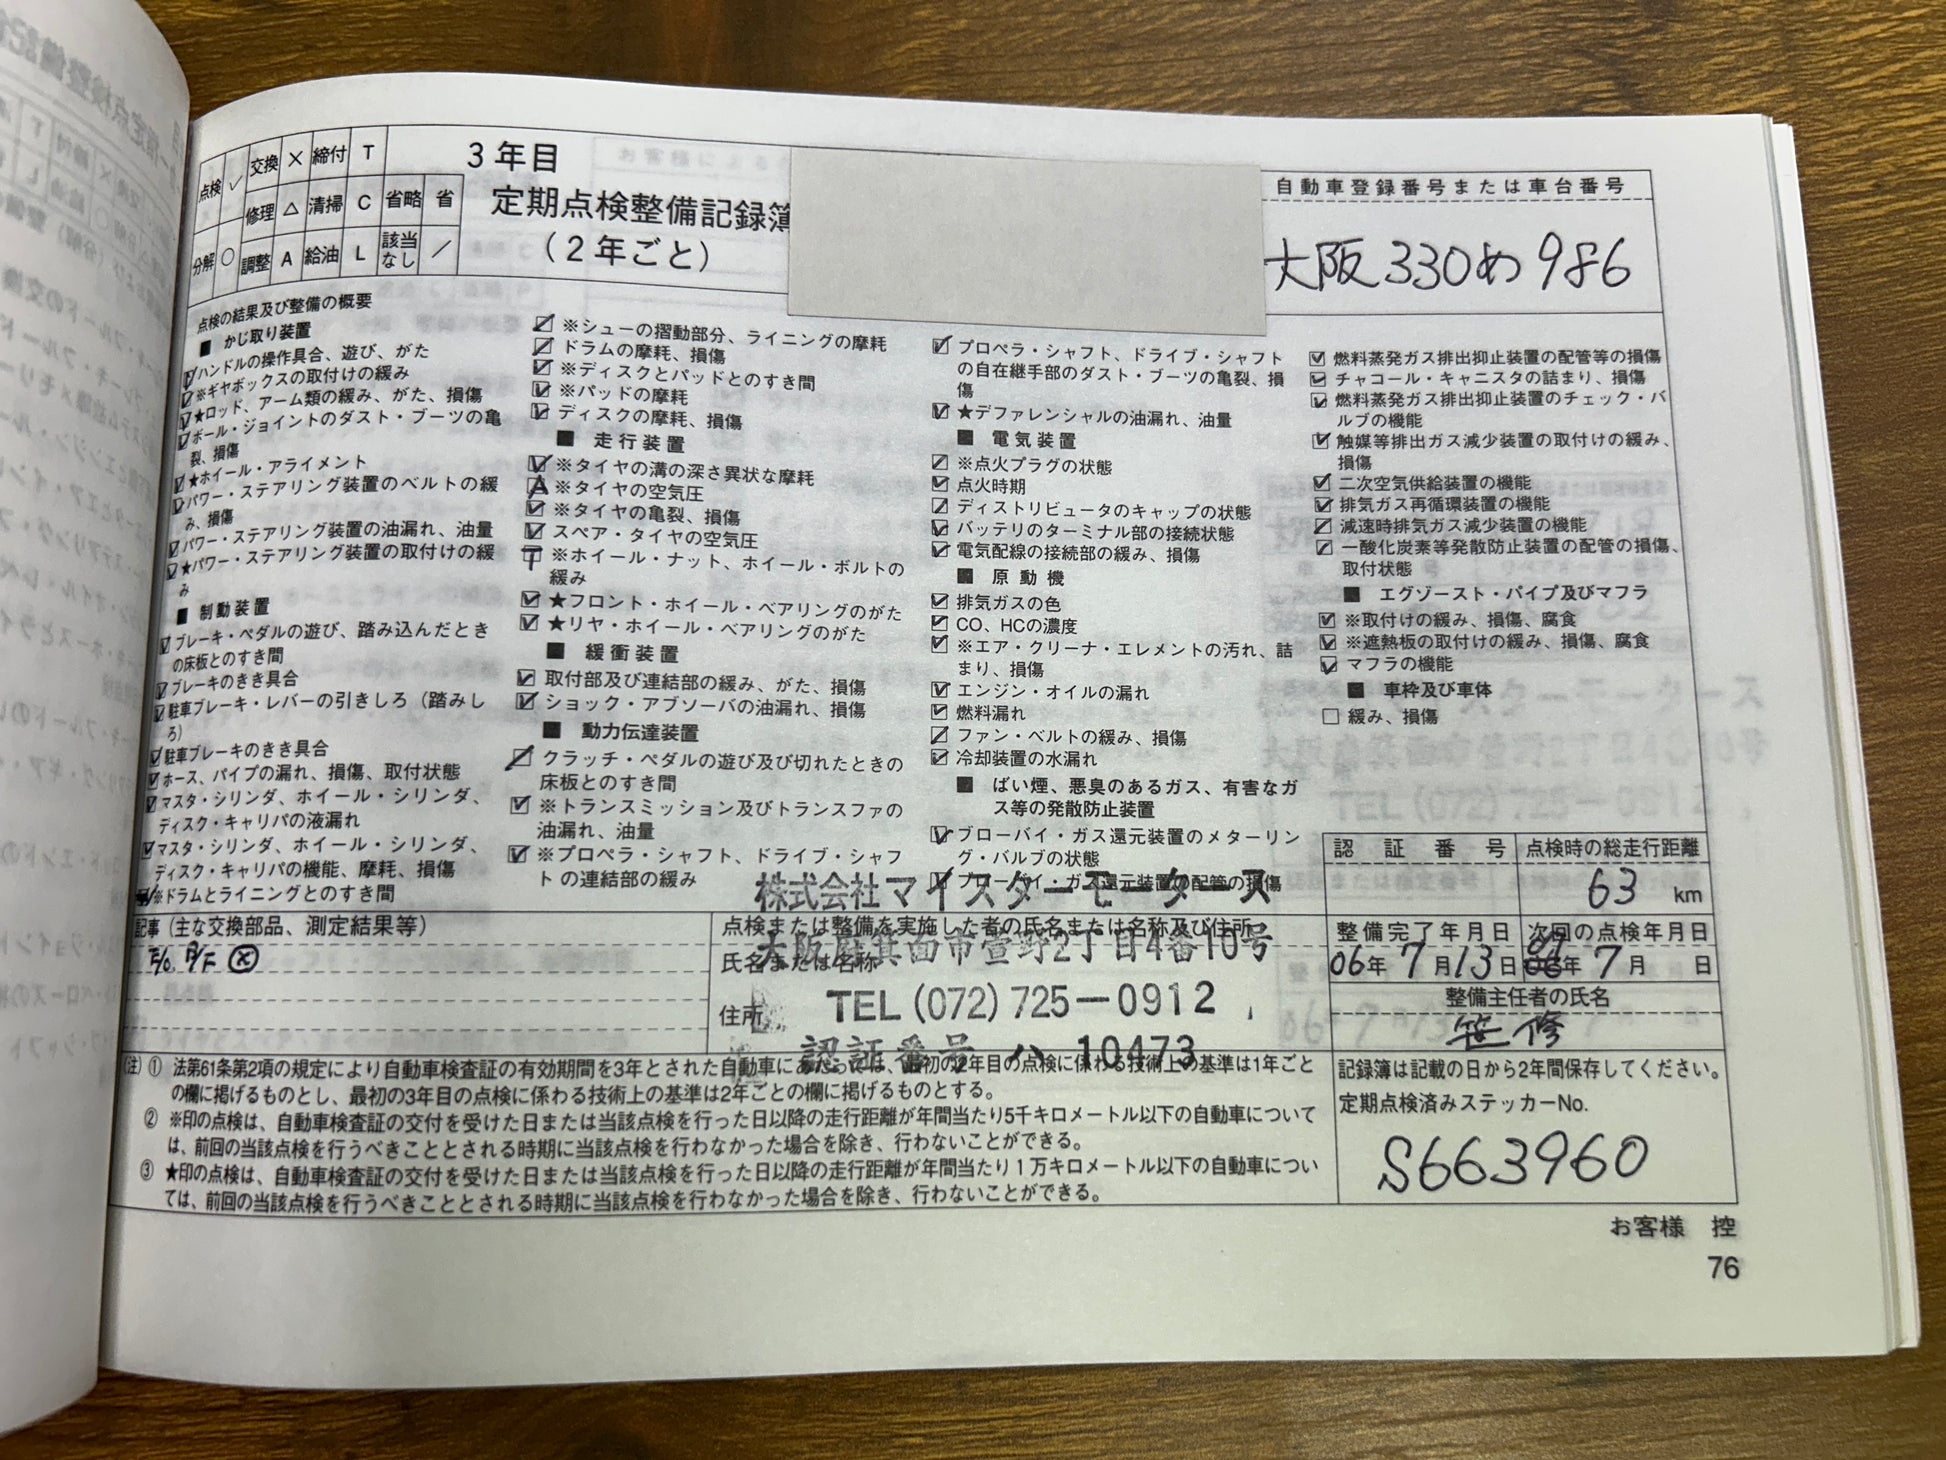 点検 ✓ 交換 × 締付 T
修理 △ 清掃 C 省略 省
分解 ○ 調整 A 給油 L 該当なし ／
3年目
定期点検整備記録簿
(2年ごと)
自動車登録番号または車台番号
大阪330め986
点検の結果及び整備の概要
■ かじ取り装置
ハンドルの操作具合、遊び、がた
※ギヤボックスの取付けの緩み
★ロッド、アーム類の緩み、がた、損傷
ボール・ジョイントのダスト・ブーツの亀
裂、損傷
★ホイール・アライメント
パワー・ステアリング装置のベルトの緩
み、損傷
パワー・ステアリング装置の油漏れ、油量
★パワー・ステアリング装置の取付けの緩
み
■ 制動装置
ブレーキ・ペダルの遊び、踏み込んだとき
の床板とのすき間
ブレーキのきき具合
駐車ブレーキ・レバーの引きしろ（踏みし
ろ）
駐車ブレーキのきき具合
ホース、パイプの漏れ、損傷、取付状態
マスタ・シリンダ、ホイール・シリンダ、
ディスク・キャリパの液漏れ
マスタ・シリンダ、ホイール・シリンダ、
ディスク・キャリパの機能、摩耗、損傷
※ドラムとライニングとのすき間
※シューの摺動部分、ライニングの摩耗
ドラムの摩耗、損傷
※ディスクとパッドとのすき間
※パッドの摩耗
ディスクの摩耗、損傷
■ 走行装置
※タイヤの溝の深さ異状な摩耗
A ※タイヤの空気圧
※タイヤの亀裂、損傷
スペア・タイヤの空気圧
T ※ホイール・ナット、ホイール・ボルトの
緩み
★フロント・ホイール・ベアリングのがた
★リヤ・ホイール・ベアリングのがた
■ 緩衝装置
取付部及び連結部の緩み、がた、損傷
ショック・アブソーバの油漏れ、損傷
■ 動力伝達装置
クラッチ・ペダルの遊び及び切れたときの
床板とのすき間
※トランスミッション及びトランスファの
油漏れ、油量
※プロペラ・シャフト、ドライブ・シャフ
トの連結部の緩み
プロペラ・シャフト、ドライブ・シャフト
の自在継手部のダスト・ブーツの亀裂、損
傷
★デファレンシャルの油漏れ、油量
■ 電気装置
※点火プラグの状態
点火時期
ディストリビュータのキャップの状態
バッテリのターミナル部の接続状態
電気配線の接続部の緩み、損傷
■ 原動機
排気ガスの色
CO、HCの濃度
※エア・クリーナ・エレメントの汚れ、詰
まり、損傷
エンジン・オイルの漏れ
燃料漏れ
ファン・ベルトの緩み、損傷
冷却装置の水漏れ
■ ばい煙、悪臭のあるガス、有害なガ
ス等の発散防止装置
ブローバイ・ガス還元装置のメターリン
グ・バルブの状態
ブローバイ・ガス還元装置の配管の損傷
燃料蒸発ガス排出抑止装置の配管等の損傷
チャコール・キャニスタの詰まり、損傷
燃料蒸発ガス排出抑止装置のチェック・バ
ルブの機能
触媒等排出ガス減少装置の取付けの緩み、
損傷
二次空気供給装置の機能
排気ガス再循環装置の機能
減速時排気ガス減少装置の機能
一酸化炭素等発散防止装置の配管の損傷、
取付状態
■ エグゾースト・パイプ及びマフラ
※取付けの緩み、損傷、腐食
※遮熱板の取付けの緩み、損傷、腐食
マフラの機能
■ 車枠及び車体
□ 緩み、損傷
認証番号
点検時の総走行距離
63 km
記事（主な交換部品、測定結果等）
点検または整備を実施した者の氏名または名称及び住所
氏名または名称
住所
株式会社マイスターモータース
大阪府箕面市萱野2丁目4番10号
TEL(072)725－0912
認証番号 ハ 10473
整備完了年月日
06年7月13日
次回の点検年月日
年7月 日
整備主任者の氏名
笹 修
(注) ① 法第61条第2項の規定により自動車検査証の有効期間を3年とされた自動車にあっては、最初の2年目の点検に係わる技術上の基準は1年ごと
の欄に掲げるものとし、最初の3年目の点検に係わる技術上の基準は2年ごとの欄に掲げるものとする。
② ※印の点検は、自動車検査証の交付を受けた日または当該点検を行った日以降の走行距離が年間当たり5千キロメートル以下の自動車について
は、前回の当該点検を行うべきこととされる時期に当該点検を行わなかった場合を除き、行わないことができる。
③ ★印の点検は、自動車検査証の交付を受けた日または当該点検を行った日以降の走行距離が年間当たり1万キロメートル以下の自動車につい
ては、前回の当該点検を行うべきこととされる時期に当該点検を行わなかった場合を除き、行わないことができる。
記録簿は記載の日から2年間保存してください。
定期点検済みステッカーNo.
S663960
お客様 控
76